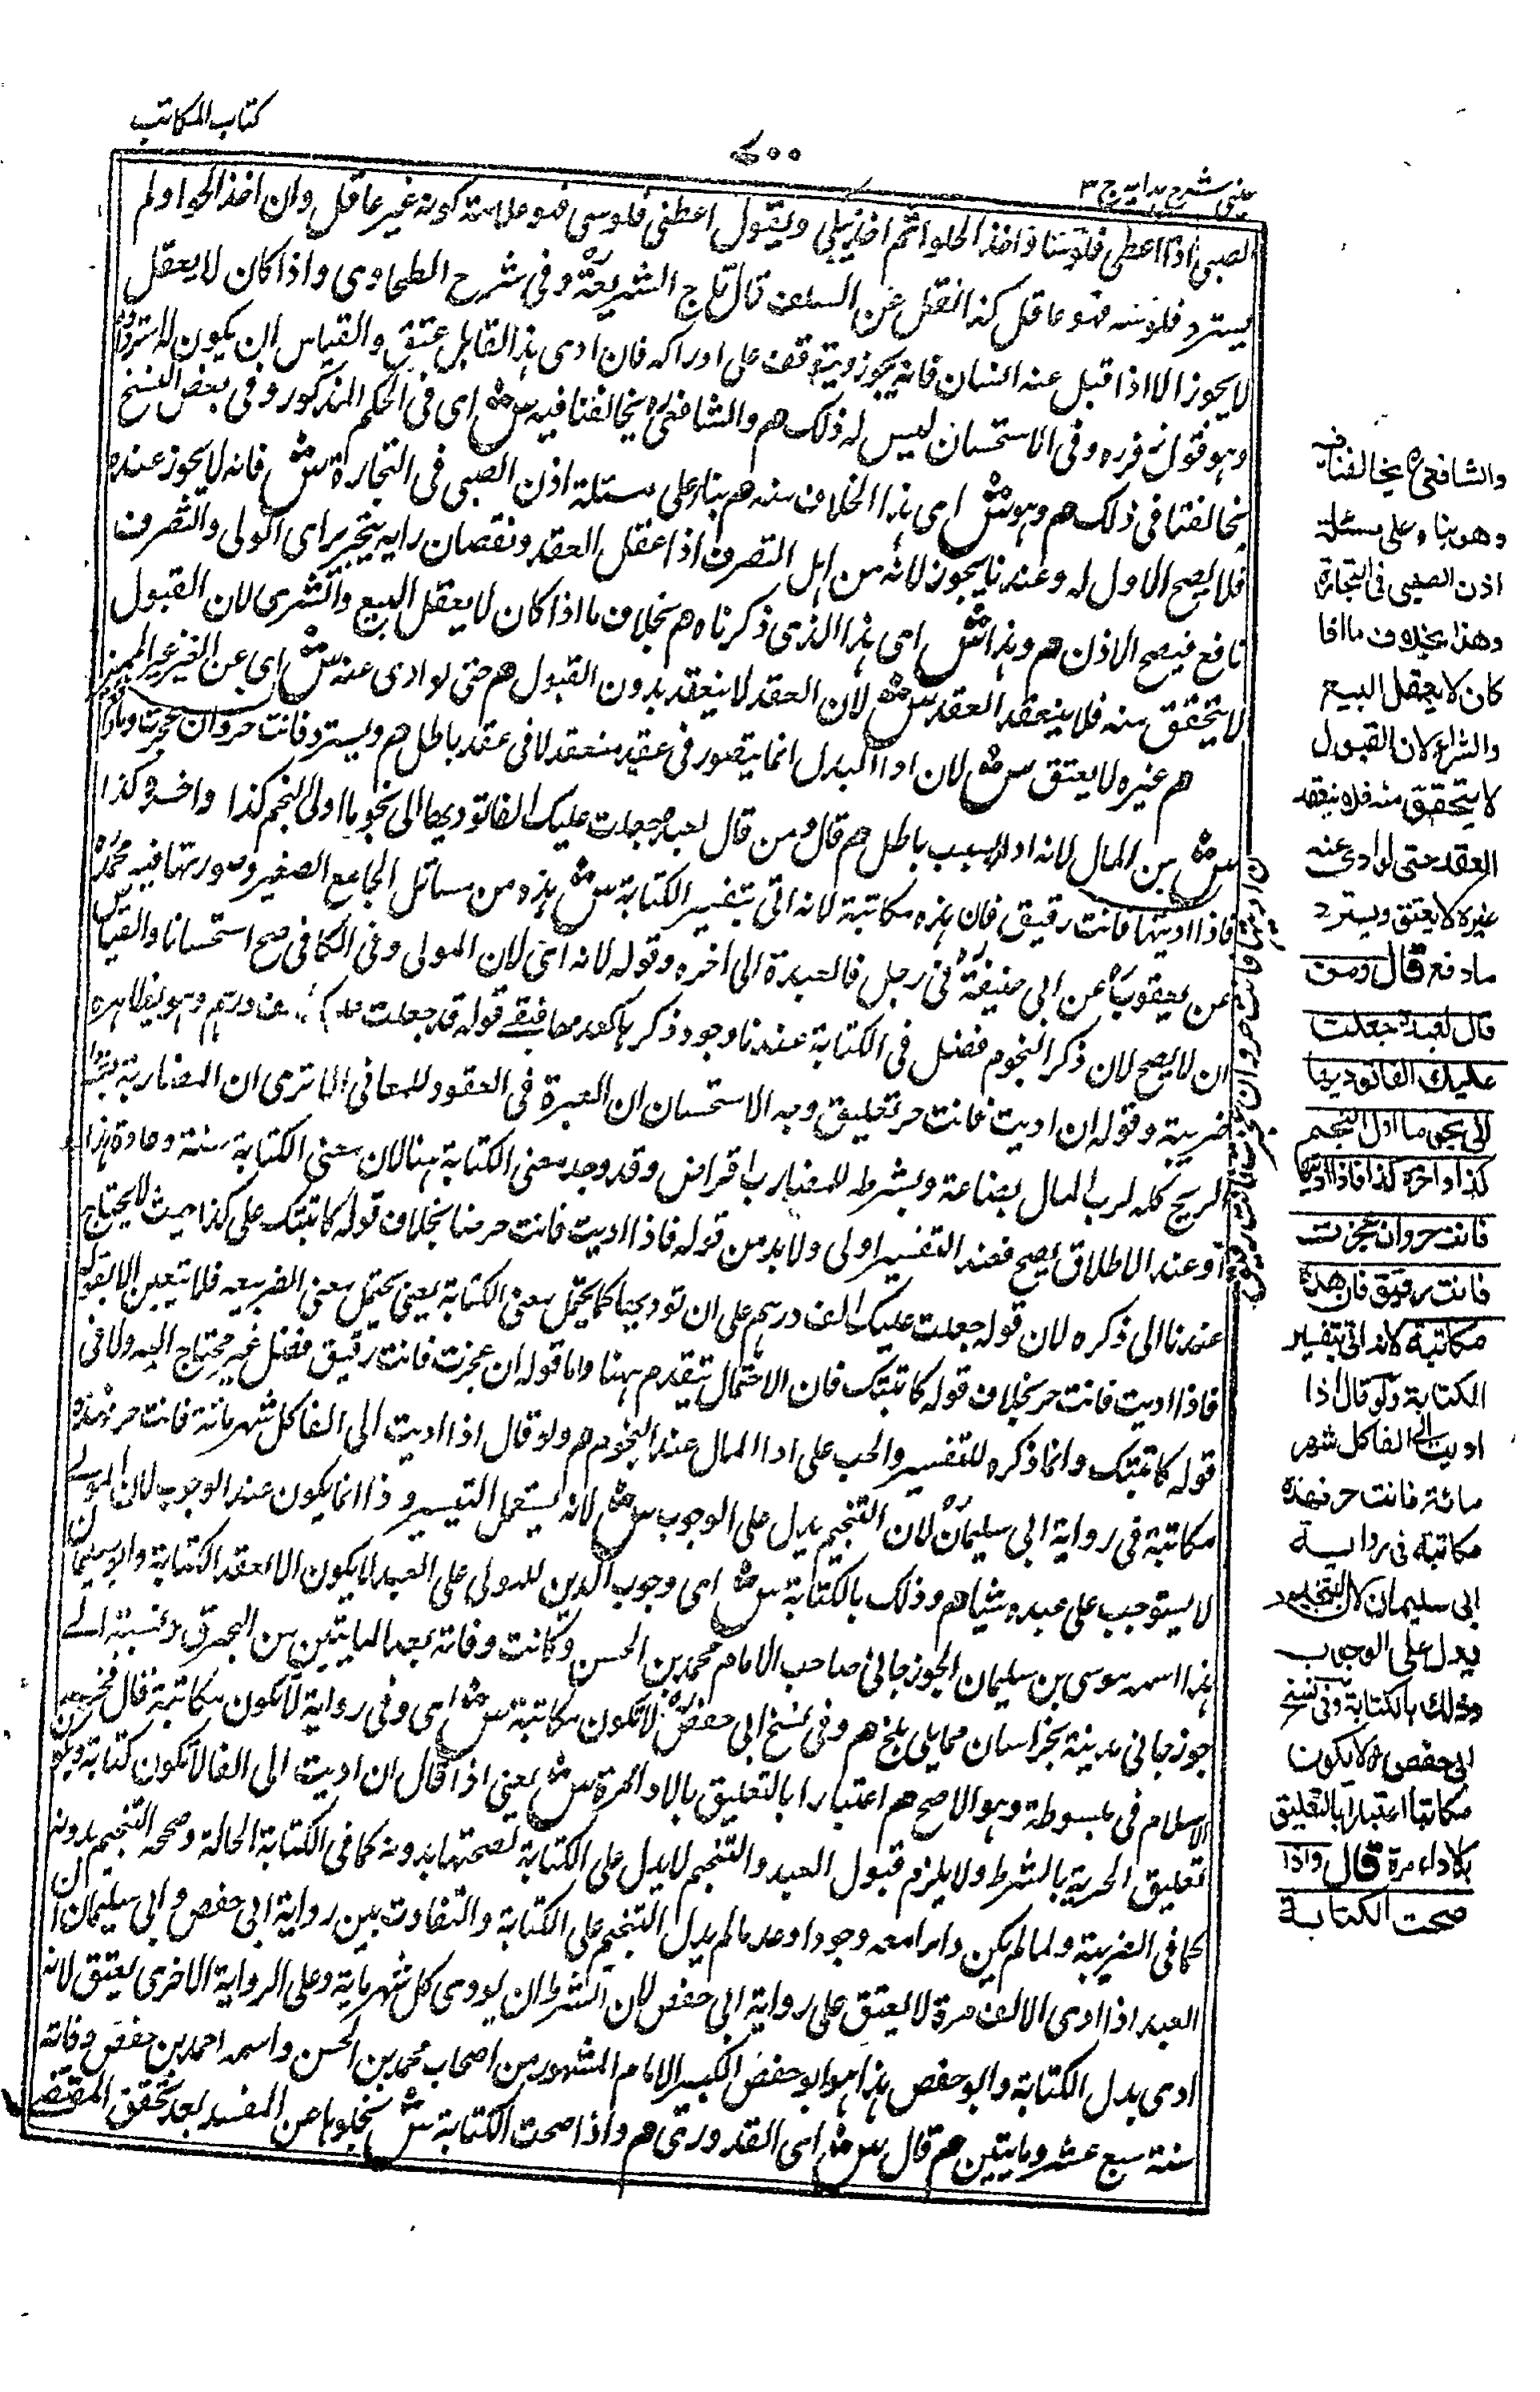 كتاب المكاتب
٧٠٠
عينى شرح هدايه ج ٣
الصبى اذا اعطى فلوسا فاخذ الحلوا ثم اخذ يبكى ويقول اعطنى فلوسى فهو علامة كونه غير عاقل وان اخذ الحلوا ولم
يسترد فلوسه فهو عاقل كذا نقل عن السلف قال تاج الشريعة وفى شرح الطحاوى واذا كان لا يعقل
لا يجوز الا اذا قبل عنه انسان فانه يجوز ويتوقف على ادراكه فان ادى هذا القابل عتق والقياس ان يكون له استرداده
وهو قول زفر وفى الاستحسان ليس له ذلك هم والشافعى يخالفنا فيه ش اى فى الحكم المذكور وفى بعض النسخ
يخالفنا فى ذلك هم وهو ش اى هذا الخلاف منه هم بناء على مسئلة اذن الصبى فى التجارة ش فانه لا يجوز عنده
فلا يصح الاول له وعندنا يجوز لانه من اهل التصرف اذا عقل العقد ونقصان رايه ينجبر براى المولى والتصرف
نافع فيصح الاذن هم وهذا ش اى هذا الذى ذكرناه هم بخلاف ما اذا كان لا يعقل البيع والشرى لان القبول
لا يتحقق منه فلا ينعقد العقد ش لان العقد لا ينعقد بدون القبول هم حتى لو ادى عنه ش اى عن الغير المميز
هم غيره لا يعتق ش لان اداء البدل انما يتصور فى عقد منعقد لا فى عقد باطل هم ويسترد
ش من المال لانه اداء بسبب باطل هم قال ومن قال لعبده جعلت عليك الفا تؤديها الى نجوما اول النجم كذا واخره كذا
فاذا اديتها فانت رقيق فان هذه مكاتبة لانه اتى بتفسير الكتابة ش هذه من مسائل الجامع الصغير وصورتها فيه محمد
عن يعقوب عن ابى حنيفة فى رجل قال لعبده الى آخره وقوله لانه اى لان المولى وفى الكافى صح استحسانا والقياس
ان لا يصح لان ذكر النجوم فضل فى الكتابة عندنا وجود ذكر قوله قد جعلت
ضريبة وقوله ان اديت فانت حر تعليق وجه الاستحسان ان العبرة فى العقود للمعانى الا ترى ان المضاربة بشرط
الربح كله لرب المال بضاعة وبشرطه للمضارب اقراض وقد وجد معنى الكتابة هنا لان معنى الكتابة
او عند الاطلاق يصح فعند التفسير اولى ولابد من قوله فاذا اديت فانت حر هنا بخلاف قوله كاتبتك على كذا حيث لا يحتاج
عندنا الى ذكره لان قوله جعلت عليك الف درهم على ان تؤديها كما يحتمل معنى الكتابة يعنى يحتمل معنى الضريبه فلا يتعين الا بقوله
فاذا اديت فانت حر بخلاف قوله كاتبتك فان الاحتمال ينعدم ههنا واما قوله ان عجزت فانت رقيق فضل غير محتاج اليه ولا فى
قوله كاتبتك وانما ذكره للتفسير والحب على اداء المال عند النجوم هم ولو قال اذا اديت الى الفا كل شهر مائة فانت حر فهذه
مكاتبة فى رواية ابى سليمان لان التنجيم يدل على الوجوب ش لانه يستعمل للتيسير وذا انما يكون عند الوجوب لان المولى
لا يستوجب على عبده شيئا هم وذلك بالكتابة ش اى وجوب الدين للمولى على العبد لا يكون الا لعقد الكتابة وابو سليمان
هذا اسمه موسى بن سليمان الجوزجانى صاحب الامام محمد بن الحسن وكانت وفاته بعد المايتين من الهجرة ونسبته الى
جوزجانى مدينة بخراسان مما يلى بلخ هم وفى نسخ ابى حفص لا تكون مكاتبة ش اى وفى رواية لا تكون مكاتبة قال فخر
الاسلام فى مبسوطه وهو الاصح هم اعتبارا بالتعليق بالاداء مرة ش يعنى اذا قال ان اديت الى الفا لا تكون كتابة ويكون
تعليق الحرية بالشرط ولا يلزم قبول العبد والتنجيم لا يدل على الكتابة لصحتها بدونه كما فى الكتابة الحالة وصحة التنجيم بدونه
كما فى الضريبة ولما لم يكن دايرا معه وجودا وعدما لم يدل التنجيم على الكتابة والتفاوت بين رواية ابى حفص وابى سليمان ان
العبد اذا ادى الالف مرة لا يعتق على رواية ابى حفص لان الشرط ان يودى كل شهر ماية وعلى الرواية الاخرى يعتق لانه
ادى بدل الكتابة وابو حفص هذا هو ابو حفص الكبير الامام المشهور من اصحاب محمد بن الحسن واسمه احمد بن حفص وفاته
سنة سبع عشر ومايتين هم قال ش اى القدورى هم واذا صحت الكتابة ش بخلوها عن المفسد بعد تحقق المقتضى
والشافعى يخالفنا فيه
وهو بناء على مسئلة
اذن الصبى فى التجارة
وهذا بخلاف ما اذا
كان لا يعقل البيع
والشراء لان القبول
لا يتحقق منه فلا ينعقد
العقد حتى لو ادى عنه
غيره لا يعتق ويسترد
ما دفع قال ومن
قال لعبده جعلت
عليك الفا تؤديها
الى نجوما اول النجم
كذا واخره كذا فاذا اديتها
فانت حر وان عجزت
فانت رقيق فان هذه
مكاتبة لانه اتى بتفسير
الكتابة ولو قال اذا
اديت الى الفا كل شهر
مائة فانت حر فهذه
مكاتبة فى رواية
ابى سليمان لان التنجيم
يدل على الوجوب
وذلك بالكتابة وفى نسخ
ابى حفص لا يكون
مكاتبا اعتبارا بالتعليق
بالاداء مرة قال واذا
صحت الكتابة